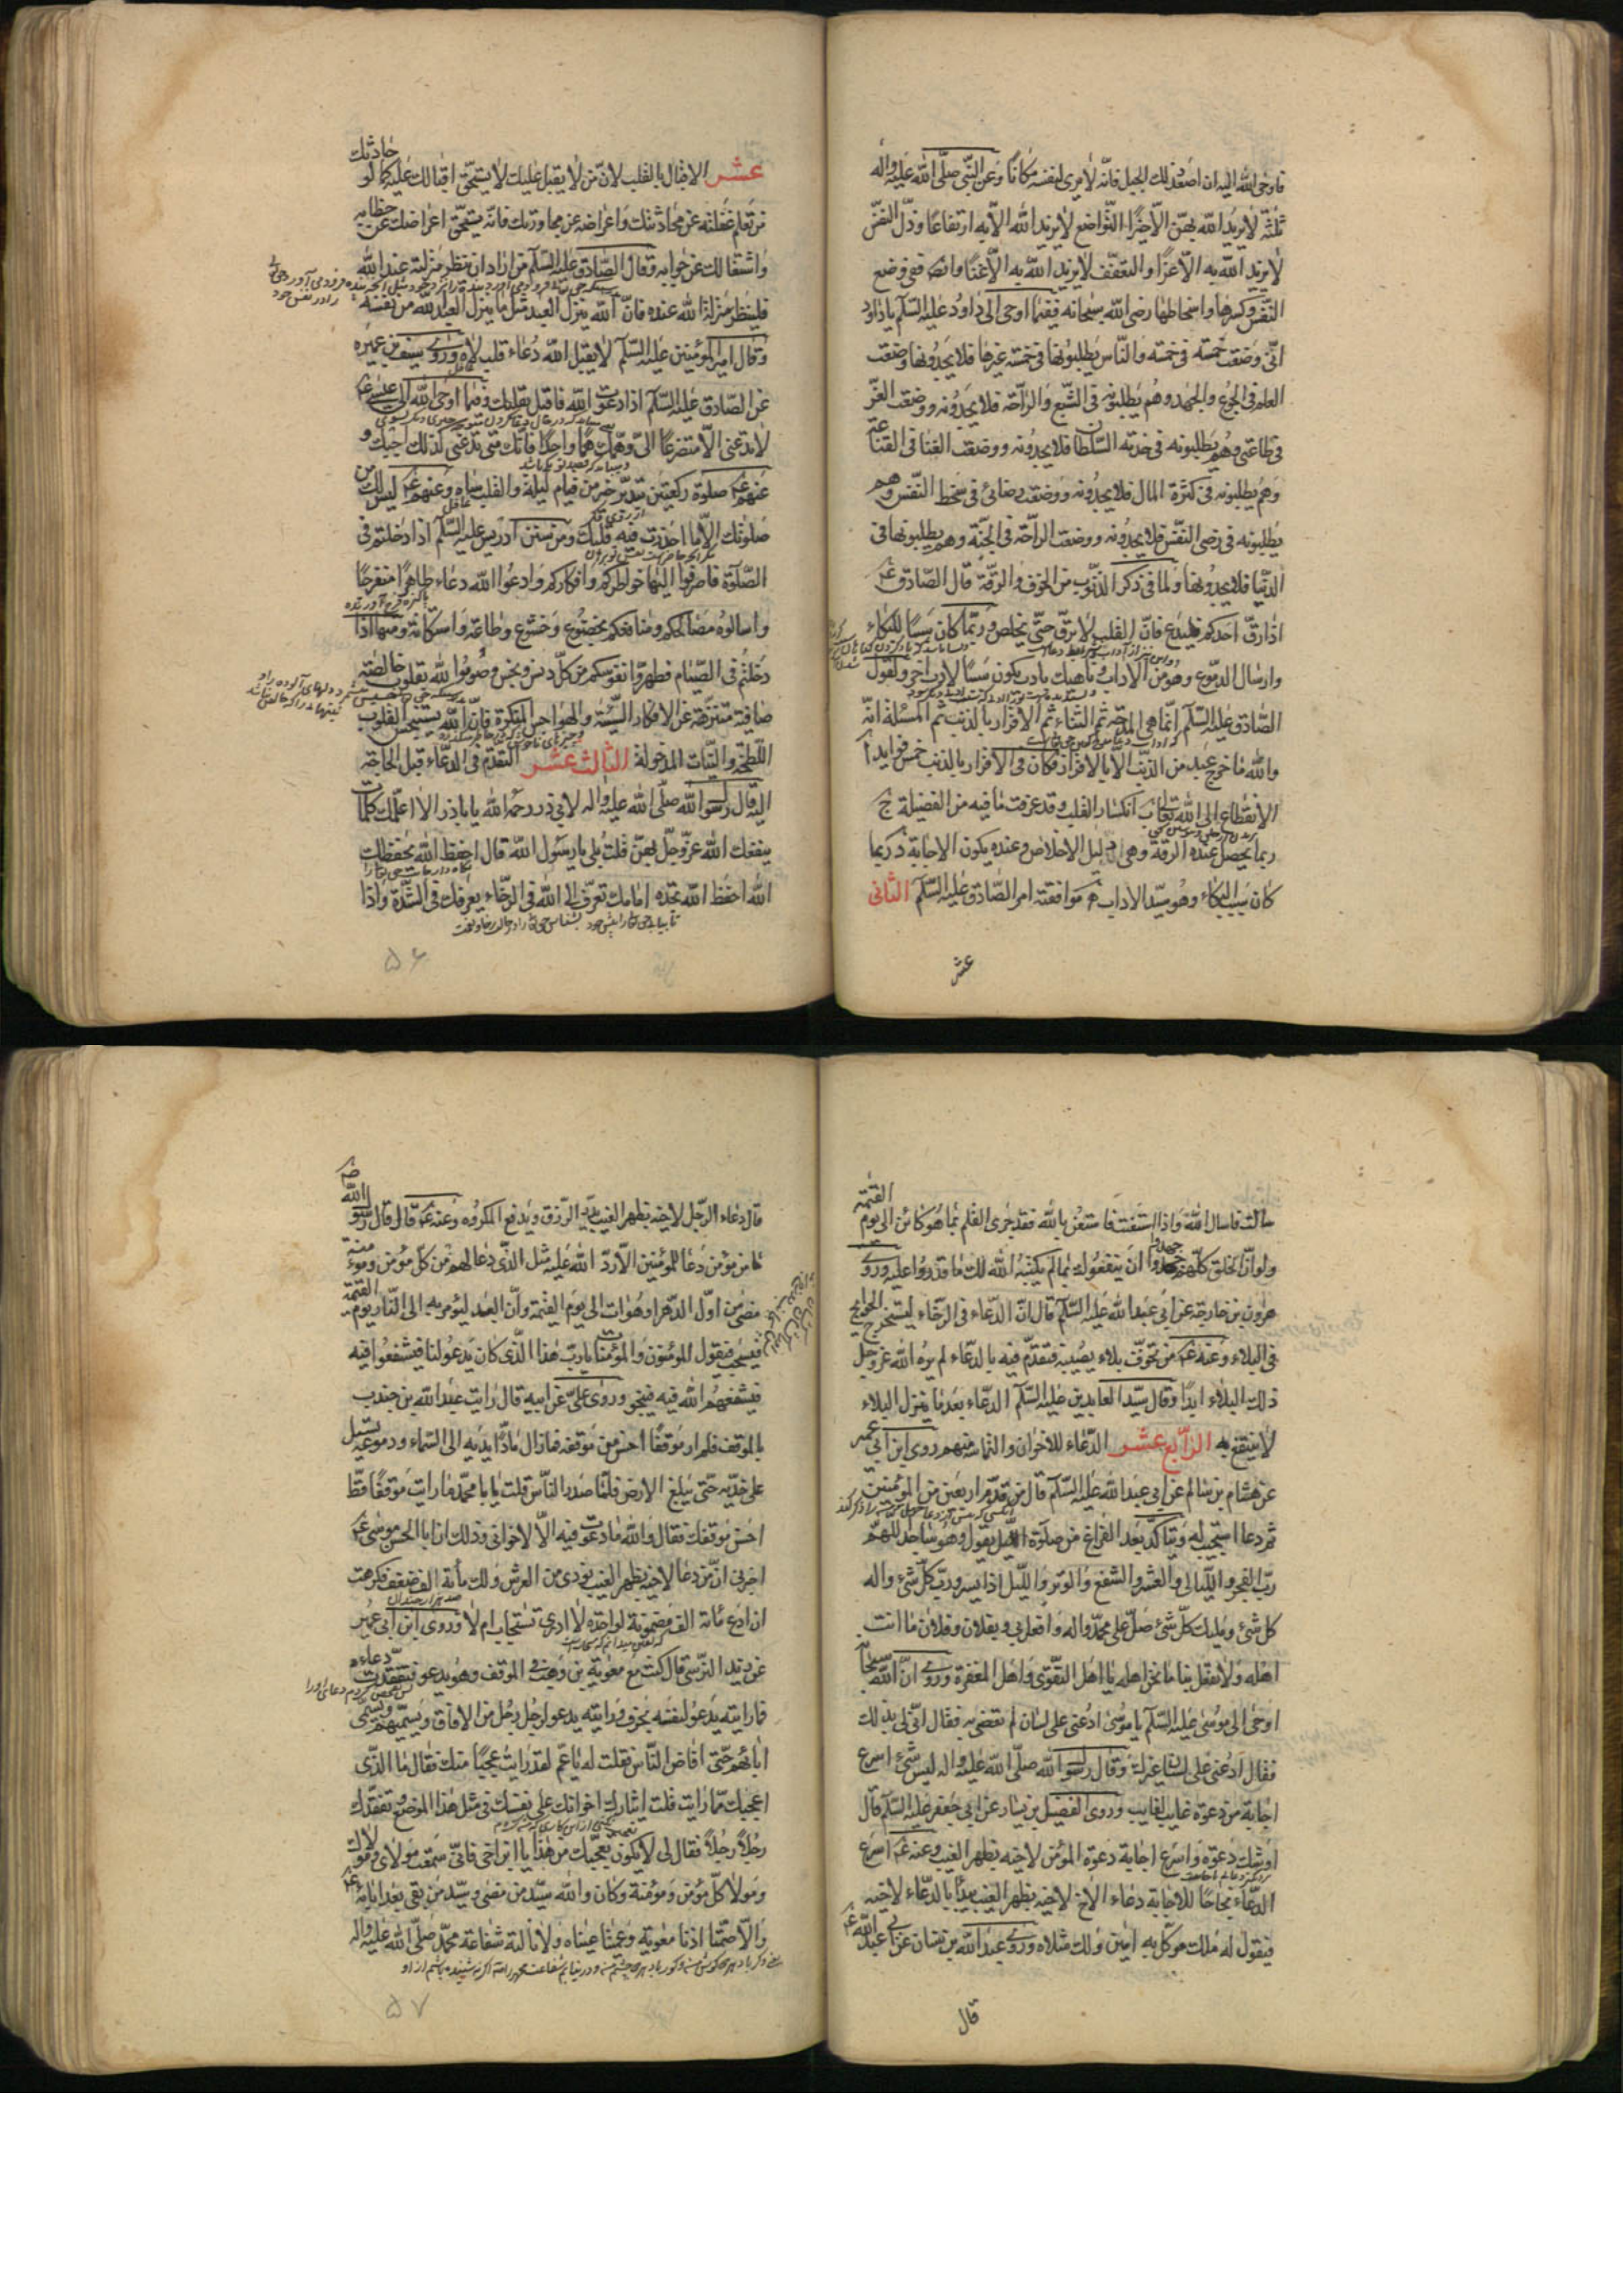 فاوحى الله اليه ان اصعد ذلك الجبل فانه لا يرى لنفسه مكانا وعن النبى صلى الله عليه واله
ثلثة لا يزيد الله بهن الا خيرا التواضع لا يزيد الله الا به ارتفاعا وذل النفس
لا يزيد الله به الا عزا والتعفف لا يزيد الله به الا غنا وايضا ففى وضع
النفس وكسرها واسخاطها رضى الله سبحانه ففيما اوحى الى داود عليه السلم يا داود
انى وضعت خمسة فى خمسة والناس يطلبونها فى خمسة غيرها فلا يجدونها وضعت
العلم فى الجوع والجهد وهم يطلبونه فى الشبع والراحة فلا يجدونه ووضعت العز
فى طاعتى وهم يطلبونه فى خدمة السلطان فلا يجدونه ووضعت الغنا فى القناعة
وهم يطلبونه فى كثرة المال فلا يجدونه ووضعت رضائى فى سخط النفس وهم
يطلبونه فى رضى النفس فلا يجدونه ووضعت الراحة فى الجنة وهم يطلبونها فى
الدنيا فلا يجدونها ولما فى ذكر الذنوب من الخوف والرقة قال الصادق ع
اذا رق احدكم فليدع فان القلب لا يرق حتى يخلص وربما كان سببا للبكاء
وارسال الدموع وهو من الاداب وناهيك بادب يكون سببا لادب اخر ولقول
الصادق عليه السلم انما هى المدحة ثم الثناء ثم الاقرار بالذنب ثم المسئلة انه
والله ما خرج عبد من الذنب الا بالاقرار فكان فى الاقرار بالذنب خمس فوايد ا
الانقطاع الى الله تعالى ب انكسار القلب وقد عرفت ما فيه من الفضيلة ج
ربما يحصل عنده الرقة وهى دليل الاخلاص وعنده يكون الاجابة د ربما
كان سبب البكاء وهو سيد الاداب ه موافقة امر الصادق عليه السلم الثانى
عشر
عشر الاقبال بالقلب لان من لا يقبل عليك لا يستحق اقبالك عليه كما لو حادثك
من تعلم غفلته عن محادثتك واعراضه عن محاورتك فانه يستحق اعراضك عن خطابه
واشتغالك عن جوابه وقال الصادق عليه السلم من اراد ان ينظر منزلته عند الله
فلينظر منزلة الله عنده فان الله ينزل العبد مثل ما ينزل العبد لله من نفسه
وقال امير المؤمنين عليه السلم لا يقبل الله دعاء قلب لاه وروى سيف بن عميره
عن الصادق عليه السلم اذا دعوت الله فاقبل بقلبك وفيما اوحى الله الى عيسى ع
لا تدعنى الا متضرعا الى وهمك هما واحدا فانك متى تدعنى كذلك اجبك و
عنهم ع صلوة ركعتين بتدبر خير من قيام ليلة والقلب ساه وعنهم ع ليس لك من
صلوتك الا ما احضرت فيه قلبك ومن سنن ادريس عليه السلم اذا دخلتم فى
الصلوة فاصرفوا اليها خواطركم وافكاركم وادعوا الله دعاء طاهرا متفرجا
واسالوه مصالحكم ومنافعكم بخضوع وخشوع وطاعة واستكانة ومنها اذا
دخلتم فى الصيام فطهروا نفوسكم من كل دنس ونجس وصوموا لله بقلوب خالصة
صافية متنزهة عن الافكار السيئة والهواجس المنكرة فان الله يستنجس القلوب
اللطخة والنيات المدخولة الثالث عشر التقدم فى الدعاء قبل الحاجة
اليه قال رسول الله صلى الله عليه واله لابى ذر رحمه الله يا باذر الا اعلمك كلمات
ينفعك الله عز وجل بهن قلت بلى يا رسول الله قال احفظ الله يحفظك
الله احفظ الله تجده امامك تعرف الى الله فى الرخاء يعرفك فى الشدة واذا
۵۶
سالت فاسال الله واذا استعنت فاستعن بالله فقد جرى القلم بما هو كائن الى يوم القيمة
ولو ان الخلق كلهم جهدوا ان ينفعوك بما لم يكتبه الله لك ما قدروا عليه وروى
هرون بن خارجة عن ابى عبد الله عليه السلم قال ان الدعاء فى الرخاء ليستخرج الحوايج
فى البلاء وعنه ع من تخوف بلاء يصيبه فتقدم فيه بالدعاء لم يره الله عز وجل
ذلك البلاء ابدا وقال سيد العابدين عليه السلم الدعاء بعد ما ينزل البلاء
لا ينتفع به الرابع عشر الدعاء للاخوان والتماسه منهم روى ابن ابى عمير
عن هشام بن سالم عن ابى عبد الله عليه السلم قال من قدم اربعين من المؤمنين
ثم دعا استجيب له ويتاكد بعد الفراغ من صلوة الليل يقول وهو ساجد اللهم
رب الفجر والليالى والعشر والشفع والوتر والليل اذا يسر ورب كل شئ واله
كل شئ ومليك كل شئ صل على محمد واله وافعل بى وبفلان وفلان ما انت
اهله ولا تفعل بنا ما نحن اهله يا اهل التقوى واهل المغفرة وروى ان الله سبحانه
اوحى الى موسى عليه السلم يا موسى ادعنى على لسان لم تعصنى به فقال انى لى بذلك
فقال ادعنى على لسان غيرك وقال رسول الله صلى الله عليه واله ليس شئ اسرع
اجابة من دعوة غايب لغايب وروى الفضيل بن يسار عن ابى جعفر عليه السلم قال
اوشك دعوة واسرع اجابة دعوة المؤمن لاخيه بظهر الغيب وعنه ع اسرع
الدعاء نجاحا للاجابة دعاء الاخ لاخيه بظهر الغيب يبدا بالدعاء لاخيه
فيقول له ملك موكل به امين ولك مثلاه وروى عبد الله بن سنان عن ابى عبد الله ع
قال
قال دعاء الرجل لاخيه بظهر الغيب يدر الرزق ويدفع المكروه وعنه ع قال قال رسول الله ص
ما من مؤمن دعا للمؤمنين الا رد الله عليه مثل الذى دعا لهم من كل مؤمن ومؤمنة
مضى من اول الدهر او هو ات الى يوم القيمة وان العبد ليؤمر به الى النار يوم القيمة
فيسحب فيقول المؤمنون والمؤمنات يا رب هذا الذى كان يدعو لنا فيشفعوا فيه
فيشفعهم الله فيه فينجو وروى على عن ابيه قال رايت عبد الله بن جندب
بالموقف فلم ار موقفا احسن من موقفه فما زال مادا يديه الى السماء ودموعه يسيل
على خديه حتى يبلغ الارض فلما صدر الناس قلت يا با محمد ما رايت موقفا قط
احسن موقفك فقال والله ما دعوت فيه الا لاخوانى وذلك ان ابا الحسن موسى ع
اخبرنى ان من دعا لاخيه بظهر الغيب نودى من العرش ولك مأة الف ضعف فكرهت
ان ادع مائة الف مضمونة لواحدة لا ادرى تستجاب ام لا وروى ابن ابى عمير
عن زيد النرسى قال كنت مع معوية بن وهب فى الموقف وهو يدعو فتفقدت دعاءه
فما رايته يدعو لنفسه بحرف ورايته يدعو لرجل رجل من الافاق ويسميهم ويسمى
ابائهم حتى افاض الناس فقلت له يا عم لقد رايت عجيبا منك فقال ما الذى
اعجبك مما رايت قلت ايثارك اخوانك على نفسك فى مثل هذا الموضع وتفقدك
رجلا رجلا فقال لى لا يكون تعجبك من هذا يا ابن اخى فانى سمعت مولاى ومولاك
ومولا كل مؤمن ومؤمنة وكان والله سيد من مضى وسيد من بقى بعد ابائه ع
والا صمتا اذنا معوية وعميتا عيناه ولا نالته شفاعة محمد صلى الله عليه واله
۵۷